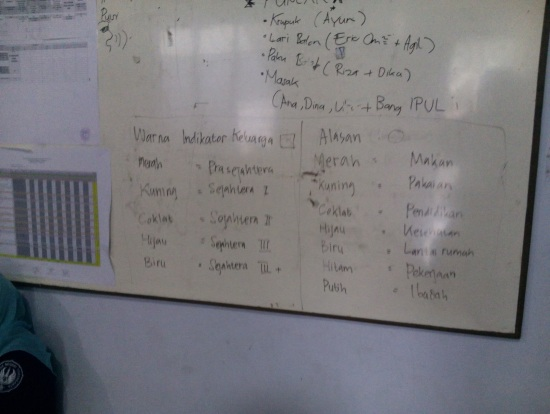 PUNCAK
• Krupuk (Ayum)
• Lari Balon (Eric + Agil)
• Paku (Riza + Dika)
• Masak
(Ana, Dina, + Bang IPUL
Warna Indikator Keluarga
Merah = Prasejahtera
Kuning = Sejahtera I
Coklat = Sejahtera II
Hijau = Sejahtera III
Biru = Sejahtera III +
Alasan
Merah = Makan
Kuning = Pakaian
Coklat = Pendidikan
Hijau = Kesehatan
Biru = Lantai rumah
Hitam = Pekerjaan
Putih = Ibadah